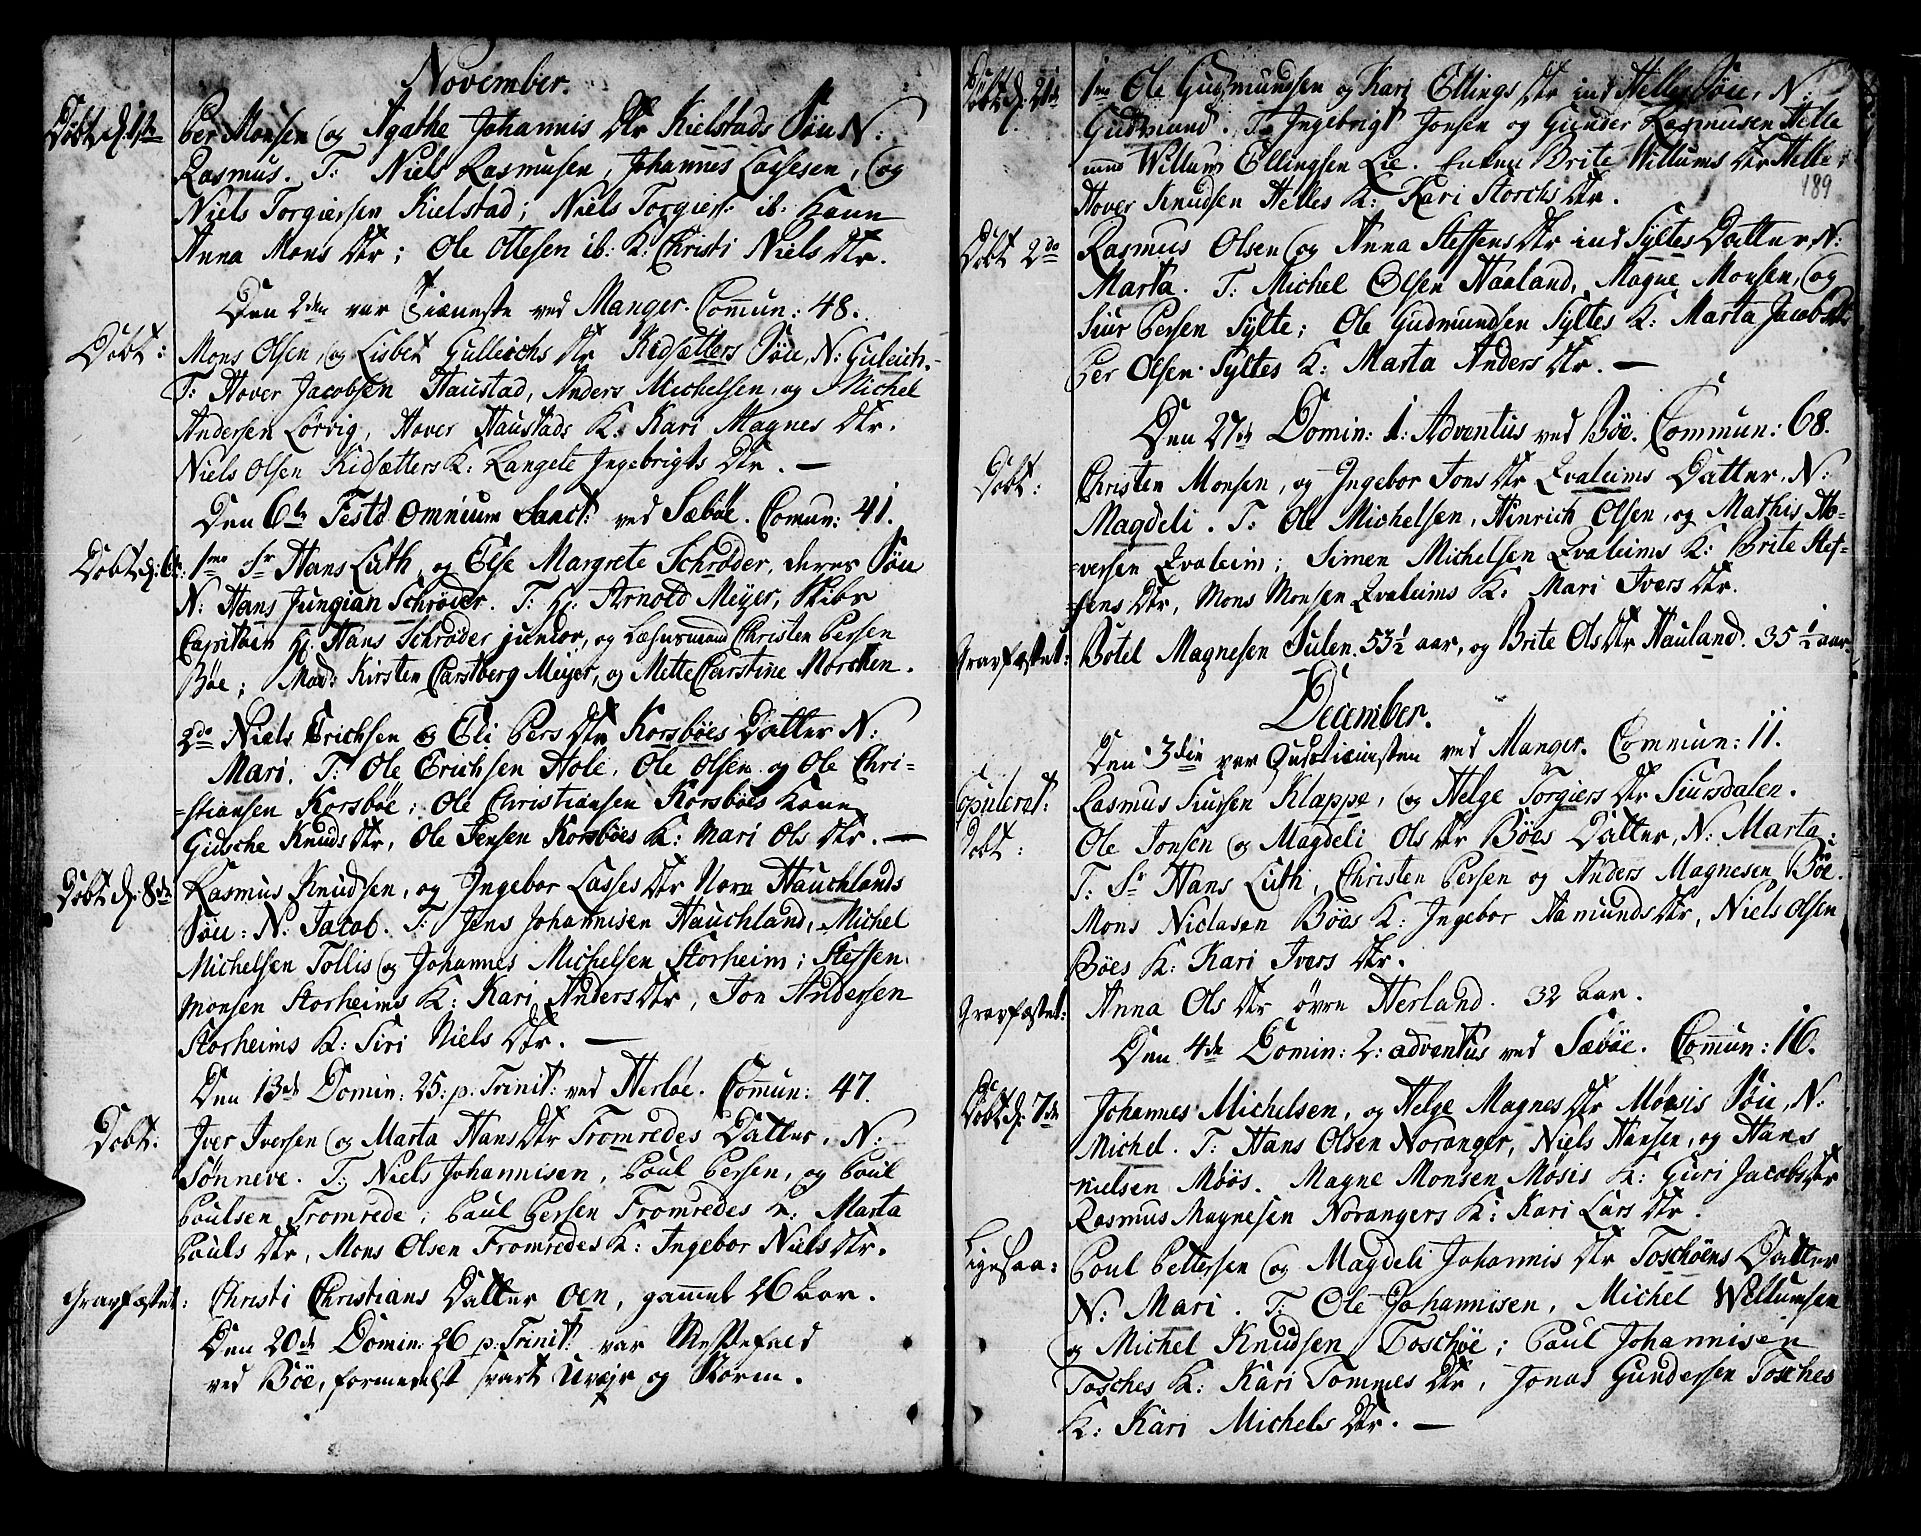 November.
Døbt d: 1te
Per Monsen og Agathe Johannis Dtr Kielstads Søn N:
Rasmus. T: Niels Rasmusen, Johannes Lassesen, og
Niels Torgiersen Kielstad; Niels Torgiers: ib: Kone
Anna Mons Dtr; Ole Ottesen ib: K: Christi Niels Dtr.
Den 2den var Tieneste ved Manger. Commun: 48.
Døbt:
Mons Olsen, og Lisbet Gulleichs Dtr Kidsætters Søn, N: Guleich.
T: Hover Jacobsen Haustad, Anders Michelsen, og Michel
Andersen Lørvig, Hover Haustads K: Kari Magnes Dtr.
Niels Olsen Kidsætters K: Langete Ingebrigts Dtr. —
Den 6te Festo Omnium Sanct: ved Sæbøe. Comun: 41.
Døbt d: 6te:
1mo Sr Hans Luth, og Else Margrete Schrøder, deres Søn
N: Hans Jungian Schrøder. T: Hr: Arnold Meyer, Skibs
Capitain Hr: Hans Schrøder junior, og Lehnsmand Christen Persen
Bøe; Mad: Kirsten Carstberg Meyer, og Mette Carstine Norchen.
2do Niels Erichsen og Eli Pers Dtr Korsbøes Datter N:
Mari. T: Ole Erichsen Hole, Ole Olsen og Ole Chri=
=stiansen Korsbøe; Ole Christiansen Korsbøes Kone
Gidsche Knuds Dtr, Ole Jensen Korsbøes K: Mari Ols Dtr. —
Døbt d: 8de
Rasmus Knudsen, og Ingebor Lasses Dtr Nore Hauchlands
Søn: N: Jacob. T: Jens Johannisen Hauchland, Michel
Michelsen Tollis og Johannes Michelsen Storheim; Steffen
Monsen Storheims K: Kari Anders Dtr, Jon Andersen
Storheims K: Siri Niels Dtr. —
Den 13de Domin: 25: p. Trinit: ved Herløe. Comun: 47.
Døbt.
Iver Iversen og Marta Hans Dtr Fromredes Datter. N:
Sønneve. T: Niels Johannisen, Poul Persen, og Poul
Poulsen Fromrede; Poul Persen Fromredes K: Marta
Pouls Dtr, Mons Olsen Fromredes K: Ingebor Niels Dtr.
Gravfæstet:
Christi Christians Datter Oen, gammel 26 Aar.
Den 20de Domin: 26 p: Trinit: var Messefald
ved Bøe, formedelst svart Uvejr og Storm.
Døbt d: 21de
1mo Ole Gudmundsen og Kari Ellings Dtr ind Helles Søn, N:
Gudmund. T: Ingebrigt Jonsen og Gunder Rasmusen Helle
Willum Ellingsen Lie. Enken Brite Willums Dtr Helle
189
Hover Knudsen Helles K: Kari Storchs Dtr.
Døbt 2do
Rasmus Olsen og Anna Steffens Dtr ind Syltes Datter N:
Marta. T: Michel Olsen Haaland, Magne Monsen, og
Siur Persen Sylte; Ole Gudmundsen Syltes K: Marta Jacobs Dtr
Per Olsen Syltes K: Marta Anders Dtr. —
Den 27de Domin: 1: Adventus ved Bøe. Commun: 68.
Døbt:
Christen Monsen, og Ingebor Jons Dtr Qvaleims Datter, N:
Magdeli. T: Ole Michelsen, Hinrich Olsen, og Mathis Ho=
=versen Qvaleim; Simen Michelsen Qvaleims K: Brite Stef=
=fens Dtr, Mons Monsen Qvaleims K: Mari Ivers Dtr.
Gravfæstet:
Botel Magnesen Sulen. 53½ aar, og Brite Ols Dtr Hauland. 35½ aar
December.
Den 3die var Gudstienesten ved Manger. Commun: 11.
Copuleret:
Rasmus Siursen Klappe, og Helge Torgiers Dtr Siursdalen.
Døbt:
Ole Jonsen og Magdeli Ols Dtr Bøes Datter, N: Marta:
T: Sr Hans Luth, Christen Persen og Anders Magnesen Bøe.
Mons Niclasen Bøes K: Ingebor Amunds Dtr, Niels Olsen
Bøes K: Kari Ivers Dtr.
Gravfæstet:
Anna Ols Dtr øvre Herland. 32 Aar.
Den 4de Domin: 2: adventus ved Sæbøe. Comun: 16.
Døbt d: 7de
Johannes Michelsen, og Helge Magnes Dtr Møsis Søn, N:
Michel. T: Hans Olsen Noranger, Niels Hansen, og Hans
Nielsen Møøs. Magne Monsen Møsis K: Guri Jacobs Dtr
Rasmus Magnesen Norangers K: Kari Lars Dtr.
Ligesaa:
Poul Pettersen og Magdeli Johannis Dtr Toschøens Datter
N: Mari. T: Ole Johannisen, Michel Willumsen
og Michel Knudsen Toschøe; Poul Johannisen
Tosches K: Kari Tommes Dtr, Jonas Gundersen Tosches
K: Kari Michels Dtr. —